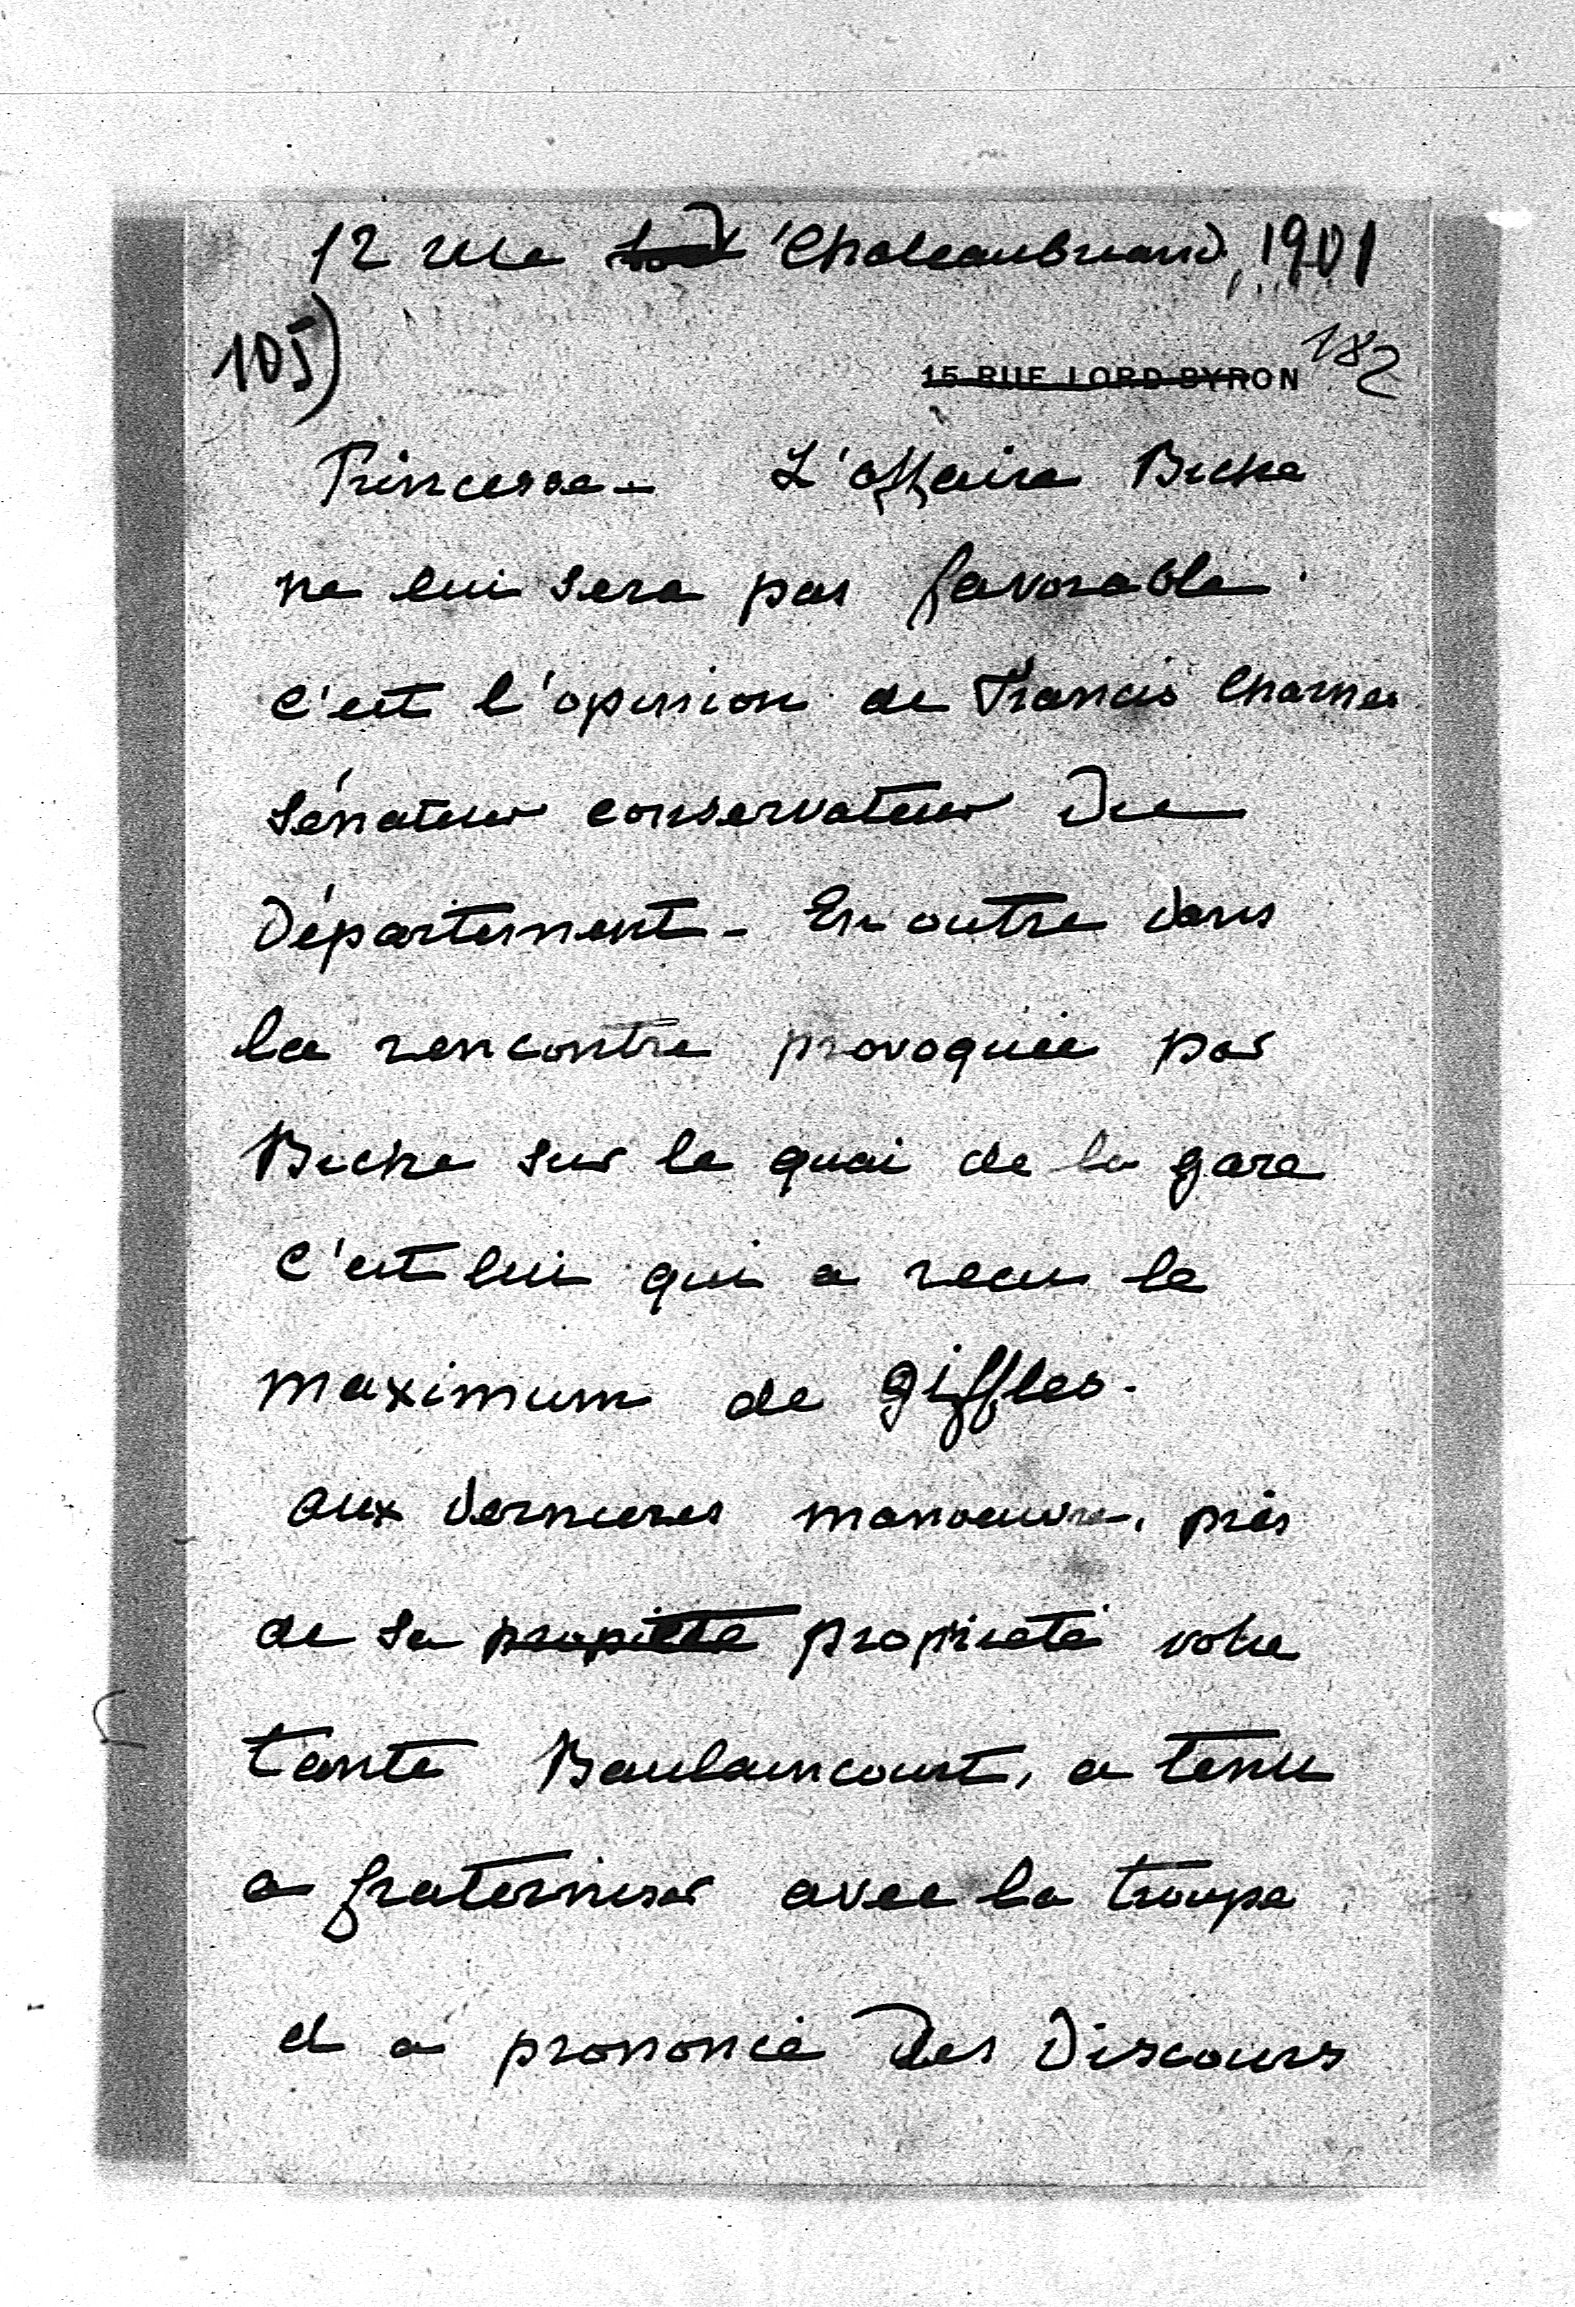 12 rue Chateaubriand, 1901
105)
182
15 RUE LORD BYRON
Princesse - L'affaire Biche
ne lui sera pas favorable
c'est l'opinion de Francis Charmes
sénateur conservateur du
Département - En outre dans
la rencontre provoquée par
Biche sur le quai de la gare
c'est lui qui a recu le
maximum de giffles.
aux dernieres manoeuvres, près
de sa propieté propriété votre
tante Baulaincourt, a tenu
a fraterniser avec la troupe
et a prononcé des Discours